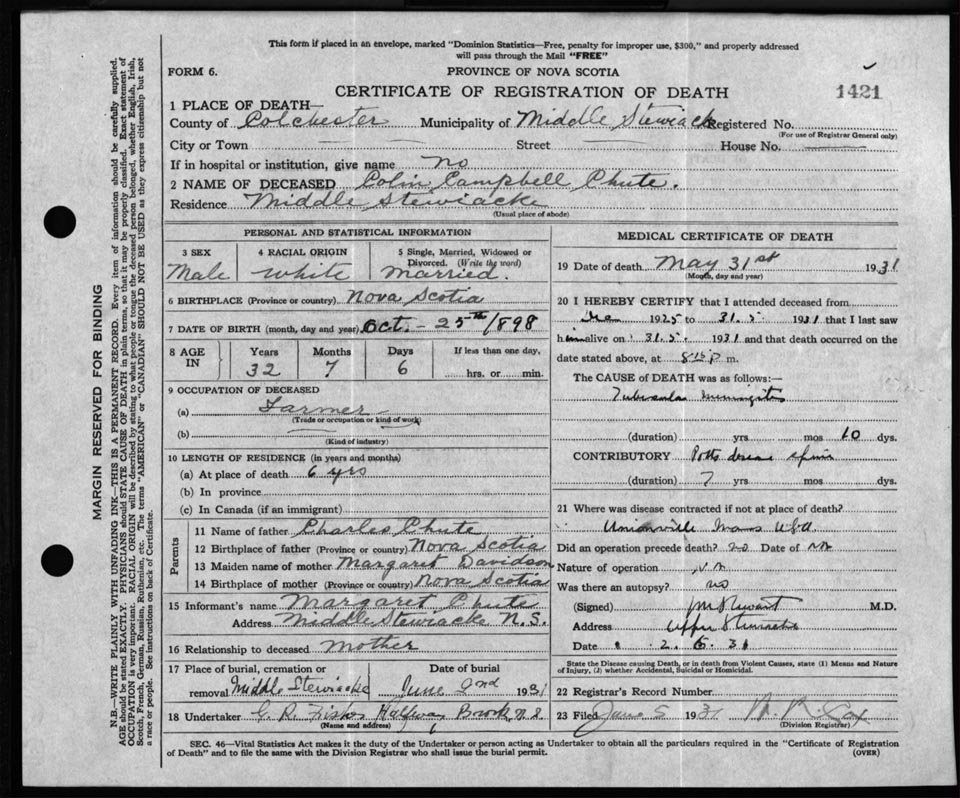 This form if placed in an envelope, marked "Dominion Statistics—Free, penalty for improper use, $300," and properly addressed
will pass through the Mail "FREE"
FORM 6.
PROVINCE OF NOVA SCOTIA
CERTIFICATE OF REGISTRATION OF DEATH
1421
1 PLACE OF DEATH—
County of Colchester Municipality of Middle Stewiacke Registered No.
(For use of Registrar General only)
City or Town Street House No.
If in hospital or institution, give name no
2 NAME OF DECEASED Colin Campbell Chute.
Residence Middle Stewiacke
(Usual place of abode)
PERSONAL AND STATISTICAL INFORMATION
3 SEX 4 RACIAL ORIGIN 5 Single, Married, Widowed or
Divorced. (Write the word)
Male white Married.
6 BIRTHPLACE (Province or country) Nova Scotia
7 DATE OF BIRTH (month, day and year) Oct. - 25th/898
8 AGE IN Years Months Days If less than one day,
32 7 6 hrs. or min.
9 OCCUPATION OF DECEASED
(a) Farmer
(Trade or occupation or kind of work)
(b)
(Kind of industry)
10 LENGTH OF RESIDENCE (in years and months)
(a) At place of death 6 yrs
(b) In province
(c) In Canada (if an immigrant)
Parents
11 Name of father Charles Chute
12 Birthplace of father (Province or country) Nova Scotia
13 Maiden name of mother Margaret Davidson
14 Birthplace of mother (Province or country) Nova Scotia
15 Informant's name Margaret Chute
Address Middle Stewiacke N.S.
16 Relationship to deceased Mother
17 Place of burial, cremation or Date of burial
removal Middle Stewiacke June 2nd 1931
18 Undertaker G. R. Halfway Brook, N.S.
(Name and address)
MEDICAL CERTIFICATE OF DEATH
19 Date of death May 31st 1931
(Month, day and year)
20 I HEREBY CERTIFY that I attended deceased from
1925 to 31.5. 1931 that I last saw
him alive on 31.5. 1931 and that death occurred on the
date stated above, at 8 15 p m.
The CAUSE of DEATH was as follows:—
Tubercular meningitis
(duration) yrs mos 10 dys.
CONTRIBUTORY Potts disease spine
(duration) 7 yrs mos dys.
21 Where was disease contracted if not at place of death?
Unionville USA.
Did an operation precede death? no Date of
Nature of operation
Was there an autopsy? no
(Signed) M.D.
Address Upper Stewiacke
Date 2. 6. 31
State the Disease causing Death, or in death from Violent Causes, state (1) Means and Nature
of Injury, (2) whether Accidental, Suicidal or Homicidal.
22 Registrar's Record Number
23 Filed June 5 1931
(Division Registrar)
SEC. 46—Vital Statistics Act makes it the duty of the Undertaker or person acting as Undertaker to obtain all the particulars required in the "Certificate of Registration
of Death" and to file the same with the Division Registrar who shall issue the burial permit.
(OVER)
MARGIN RESERVED FOR BINDING
N.B.—WRITE PLAINLY WITH UNFADING INK—THIS IS A PERMANENT RECORD. Every item of information should be carefully supplied.
AGE should be stated EXACTLY. PHYSICIANS should STATE CAUSE OF DEATH in plain terms, so that it may be properly classified. Exact statement of
OCCUPATION is very important. RACIAL ORIGIN will be described by stating to what people or tongue the deceased person belonged, whether English, Irish,
Scotch, French, German, Russian, Ruthenian, etc. The terms "AMERICAN" or "CANADIAN" SHOULD NOT BE USED as they express citizenship but not
a race or people. See instructions on back of Certificate.